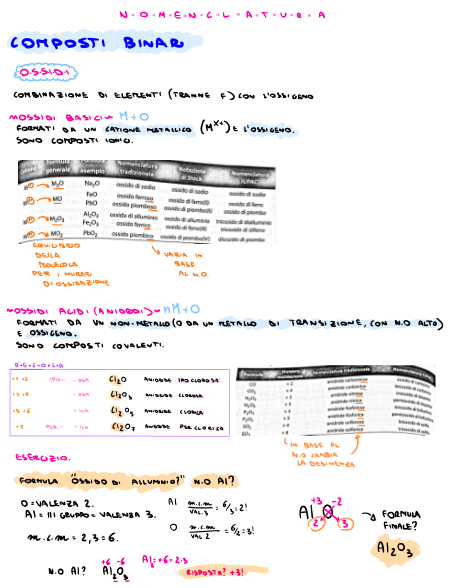 N-O-M-E-N-C-L-A-T-U-R-A
COMPOSTI BINARI
OSSIDI
COMBINAZIONE DI ELEMENTI (TRANNE F) CON L'OSSIGENO
OSSIDI BASICI ~ M+O
FORMATI DA UN CATIONE METALLICO (M^X+) E L'OSSIGENO.
SONO COMPOSTI IONICI.
generale esempio tradizionale di Stock IUPAC
M₂O Na₂O ossido di sodio ossido di sodio ossido di sodio
MO FeO ossido ferroso ossido di ferro(II) ossido di ferro
PbO ossido piomboso ossido di piombo(II) ossido di piombo
M₂O₃ Al₂O₃ ossido di alluminio ossido di alluminio triossido di dialluminio
Fe₂O₃ ossido ferrico ossido di ferro(III) triossido di diferro
MO₂ PbO₂ ossido piombico ossido di piombo(IV) diossido di piombo
EQUILIBRIO
DELLA
MOLECOLA
PER I NUMERI
DI OSSIDAZIONE
VARIA IN
BASE
AL N.O.
OSSIDI ACIDI (ANIDRIDI) ~ nM+O
FORMATI DA UN NON-METALLO (O DA UN METALLO DI TRANSIZIONE, CON N.O ALTO)
E OSSIGENO.
SONO COMPOSTI COVALENTI.
R-E-G-O-L-A
+1 +2 IPO- -OSA Cl₂O ANIDRIDE IPOCLOROSA
+3 +4 -OSA Cl₂O₃ ANIDRIDE CLOROSA
+5 +6 -ICA Cl₂O₅ ANIDRIDE CLORICA
+7 PER- -ICA Cl₂O₇ ANIDRIDE PERCLORICA
CO +2 anidride carboniosa
CO₂ +4 anidride carbonica
N₂O₃ +3 anidride nitrosa
N₂O₅ +5 anidride nitrica
anidride fosforosa
anidride fosforica
anidride solforosa
anidride solforica
IN BASE AL
N.O CAMBIA
LA DESINENZA
ESERCIZIO.
FORMULA "OSSIDO DI ALLUMINIO?" N.O Al?
O = VALENZA 2.
Al = III GRUPPO = VALENZA 3.
m.c.m = 2,3 = 6.
Al m.c.m / VAL. 3 = 6/3 = 2!
O m.c.m / VAL 2 = 6/2 = 3!
+3 -2
Al O
2 3
FORMULA
FINALE?
Al₂O₃
N.O Al? +6 -6 Al₂O₃ Al = +6 : 2 = 3
RISPOSTA? +3!